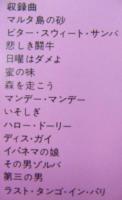 収録曲
マルタ島の砂
ビター・スウィート・サンバ
悲しき闘牛
日曜はダメよ
蜜の味
森を走こう
マンデー・マンデー
いそしぎ
ハロー・ドーリー
ディス・ガイ
イパネマの娘
その男ゾルバ
第三の男
ラスト・タンゴ・イン・パリ